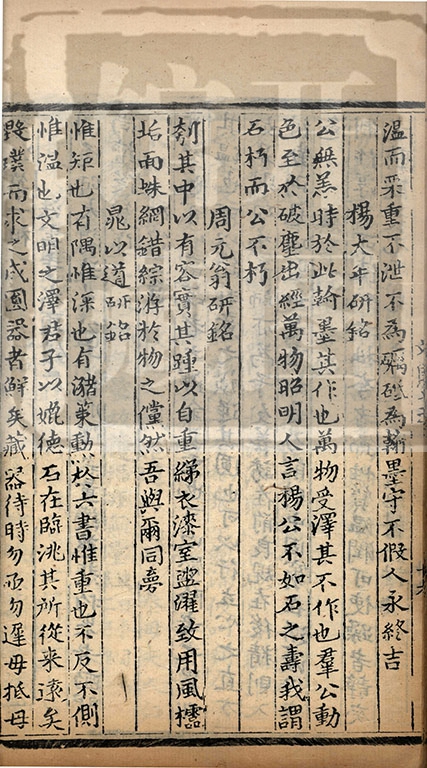 溫而栗重不泄不為礪砥為翰墨守不假人永終吉
楊大年研銘
公無恙時於此翰墨其作也萬物受澤其不作也羣公動
色至於破塵出經萬物昭明人言楊公不如石之壽我謂
石朽而公不朽
周元翁研銘
刳其中以有容實其踵以自重綈衣漆室盥濯致用風櫺
垢而蛛網錯綜游於物之儻然吾與爾同夢
晁以道研銘
惟矩也有隅惟深也有瀦策勳於六書惟重也不反不側
惟溫也文明之澤君子以媲德石在臨洮其所從來遠矣
毀璞而求之成圓器者鮮矣藏器待時勿亟勿遲毋抵毋